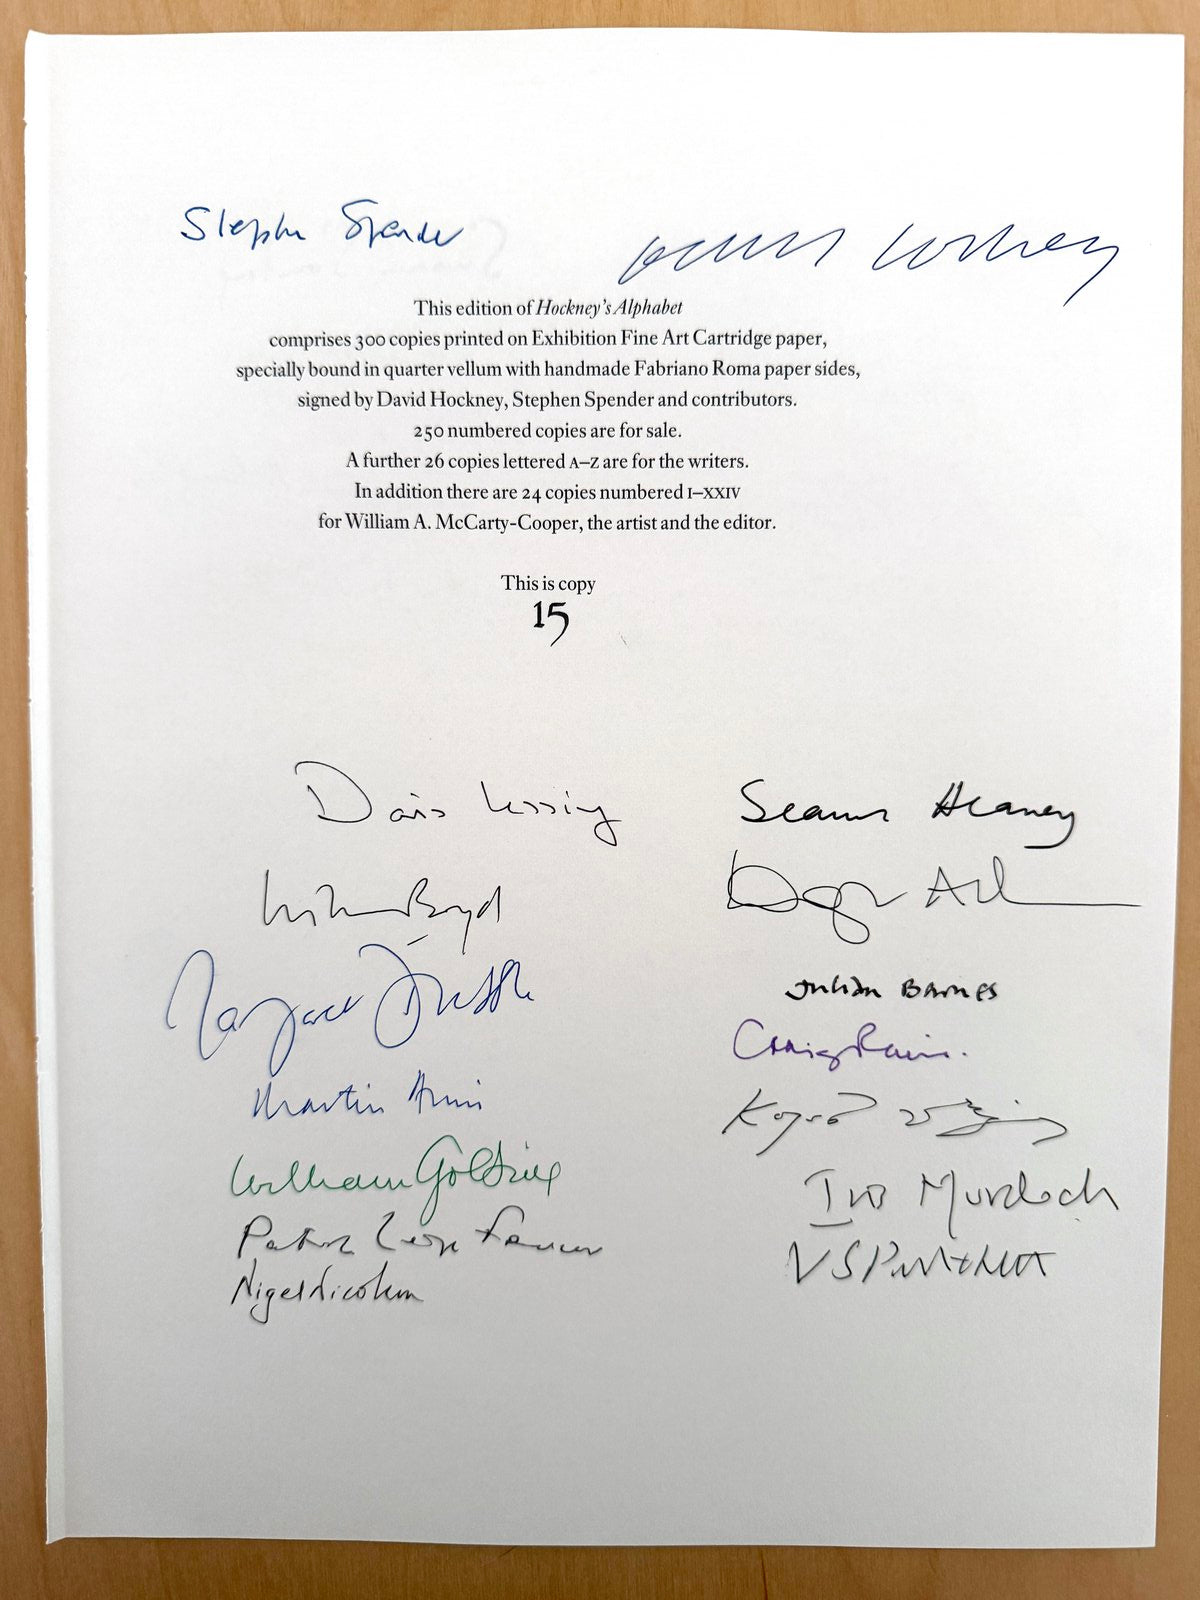 Stephen Spender
David Hockney
This edition of Hockney's Alphabet
comprises 300 copies printed on Exhibition Fine Art Cartridge paper,
specially bound in quarter vellum with handmade Fabriano Roma paper sides,
signed by David Hockney, Stephen Spender and contributors.
250 numbered copies are for sale.
A further 26 copies lettered A–Z are for the writers.
In addition there are 24 copies numbered I–XXIV
for William A. McCarty-Cooper, the artist and the editor.
This is copy
15
Doris Lessing
Seamus Heaney
William Boyd
Douglas Adams
Margaret Drabble
Julian Barnes
Craig Raine.
Martin Amis
Kazuo Ishiguro
William Golding
Iris Murdoch
Patrick Leigh Fermor
V S Pritchett
Nigel Nicolson